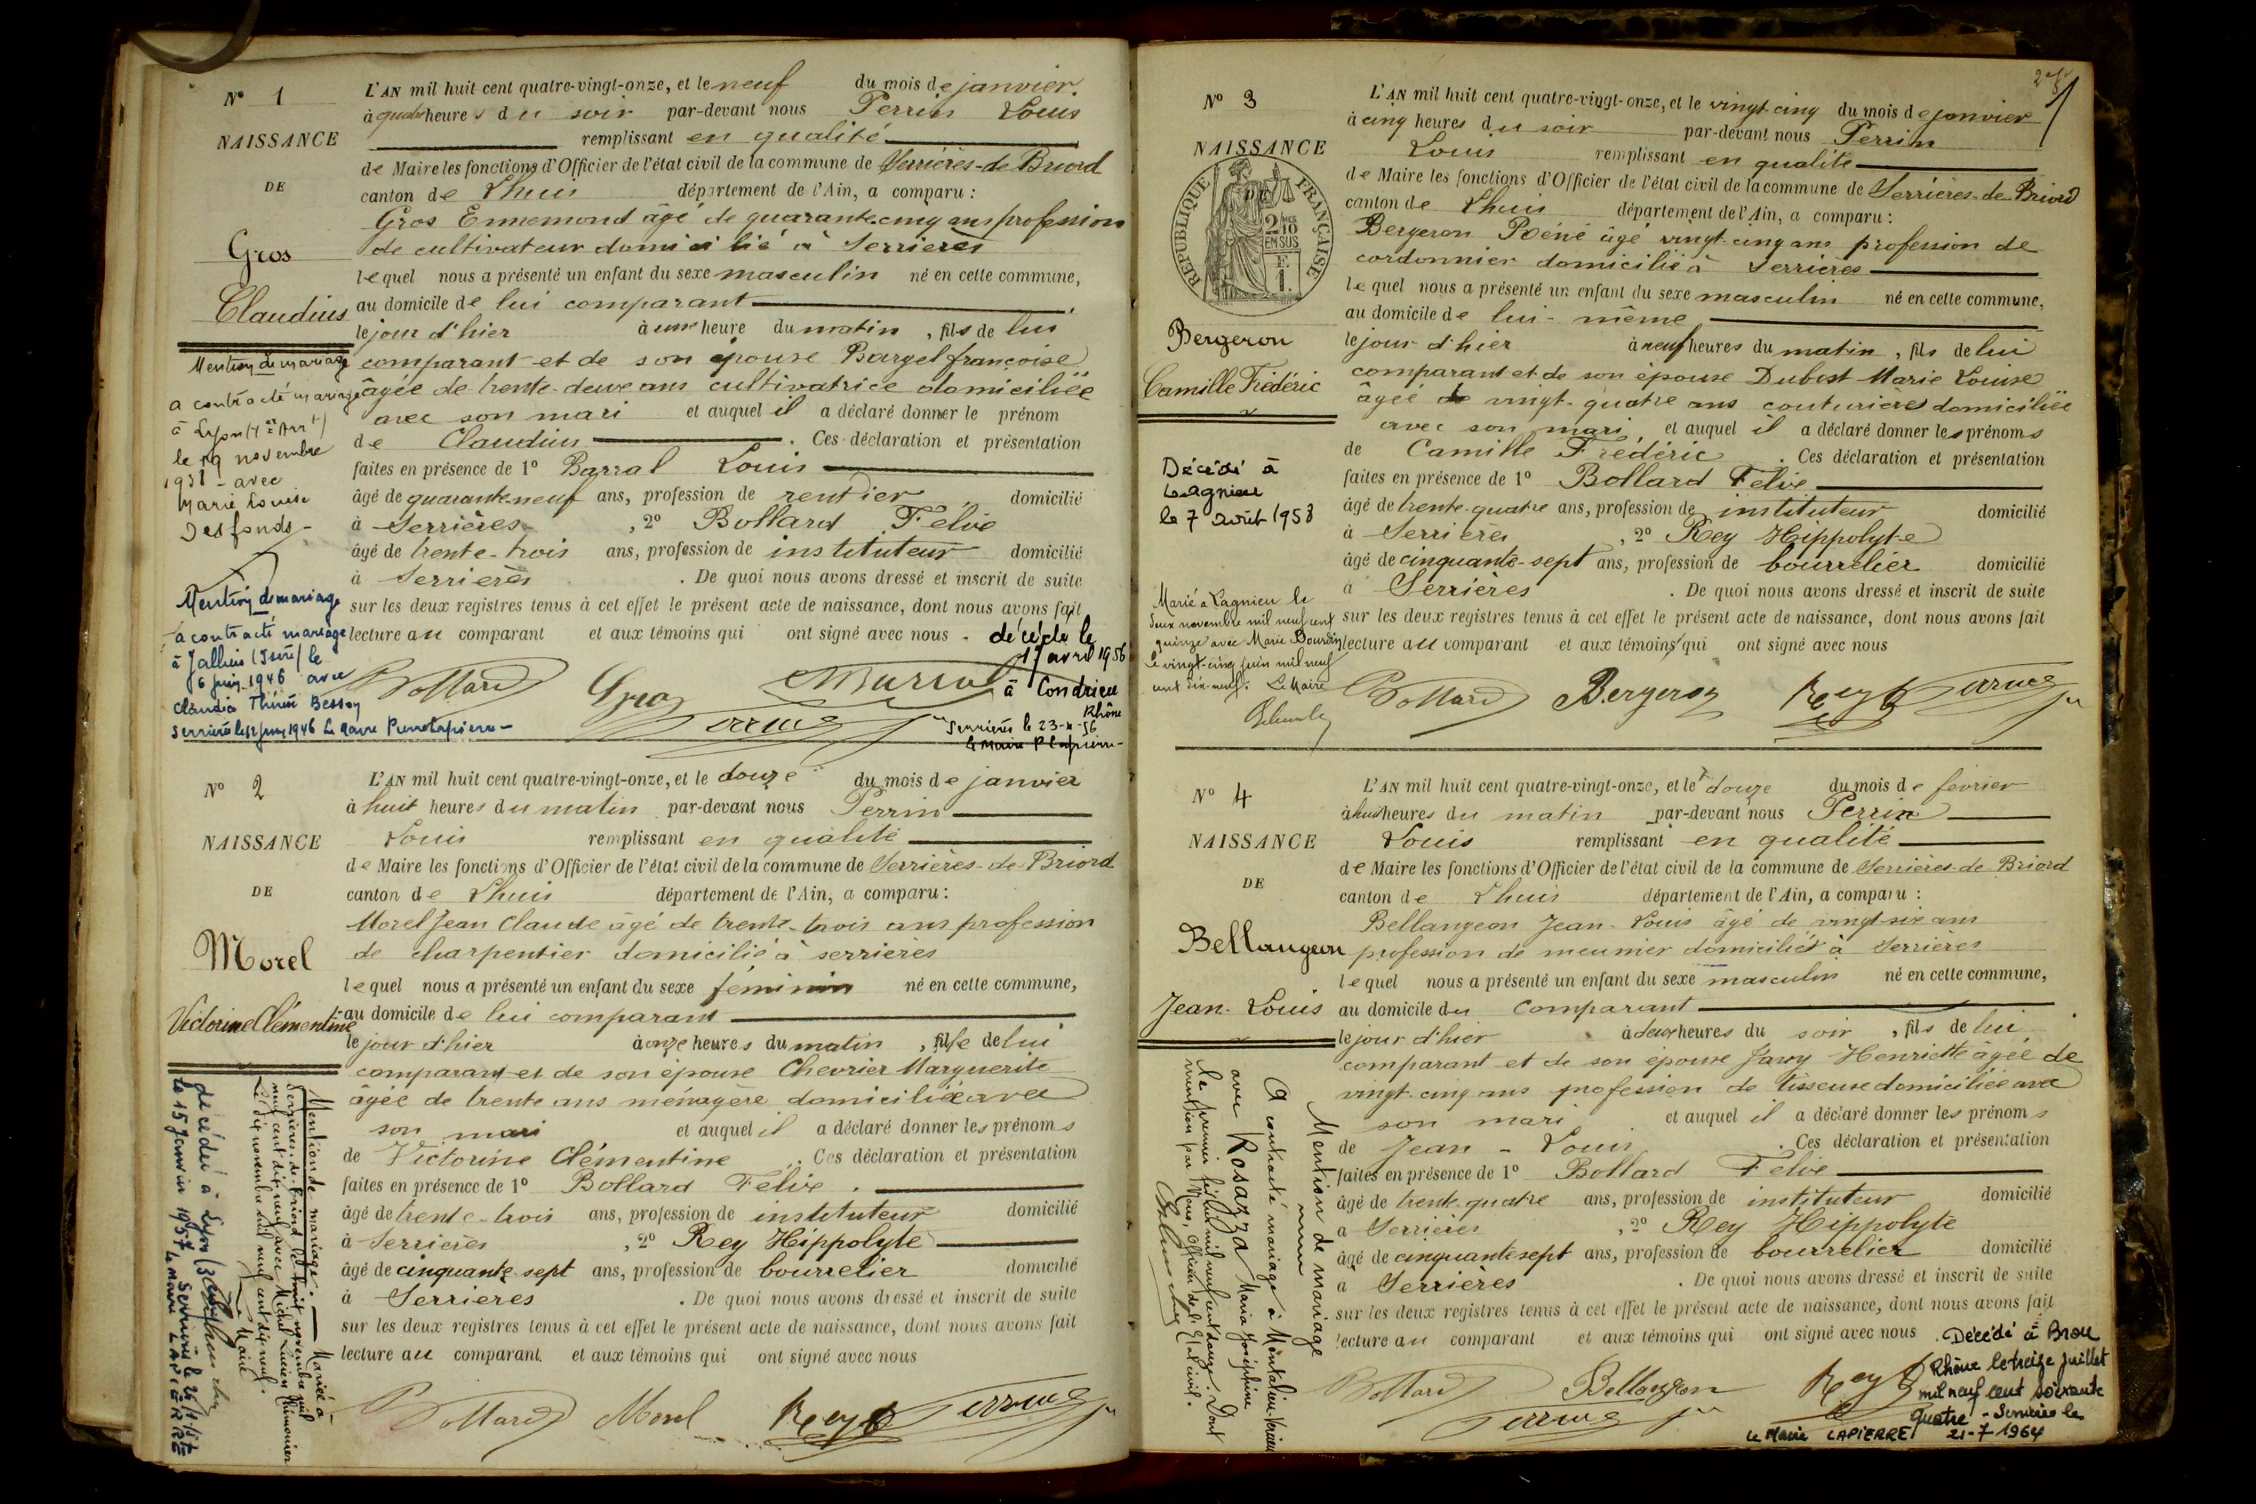 N° 1
NAISSANCE
DE
Gros
Claudius
Mention de mariage
a contracté mariage
à Lyon
le 19 novembre
1931 - avec
Marie Louise
Desfonds -
Mention de mariage
a contracté mariage
à Jallieu (Isère) le
6 juin 1946 avec
Claudia Bessoy
Serrières le 12 juin 1946 Le Maire
L'AN mil huit cent quatre-vingt-onze, et le neuf du mois de janvier
à quatre heures du soir par-devant nous Perrin Louis
remplissant en qualité
de Maire les fonctions d'Officier de l'état civil de la commune de Serrières-de-Briord
canton de Lhuis département de l'Ain, a comparu :
Gros Ennemond âgé de quarante-cinq ans profession
de cultivateur domicilié à Serrières
lequel nous a présenté un enfant du sexe masculin né en cette commune,
au domicile de lui comparant
le jour d'hier à une heure du matin, fils de lui
comparant et de son épouse Bargel françoise
âgée de trente-deux ans cultivatrice domiciliée
avec son mari et auquel il a déclaré donner le prénom
de Claudius. Ces déclaration et présentation
faites en présence de 1° Barral Louis
âgé de quarante-neuf ans, profession de rentier domicilié
à Serrières, 2° Bollard Félix
âgé de trente-trois ans, profession de instituteur domicilié
à Serrières. De quoi nous avons dressé et inscrit de suite
sur les deux registres tenus à cet effet le présent acte de naissance, dont nous avons fait
lecture au comparant et aux témoins qui ont signé avec nous.
décédé le
17 avril 1956
à Condrieu
Rhône
Serrières le 23-4-56
le Maire P Lapierre
Bollard Gros
Perrin
N° 2
NAISSANCE
DE
Morel
Victorine Clémentine
Mention de mariage. Mariée à
Serrières-de-Briord le huit novembre mil
neuf cent dix neuf avec Michel Lucien
Le dix novembre mil neuf cent dix neuf.
Le Maire
décédée à Lyon
le 15 Janvier 1957 Serrières le
Le Maire LAPIERRE
L'AN mil huit cent quatre-vingt-onze, et le douze du mois de janvier
à huit heures du matin par-devant nous Perrin
Louis remplissant en qualité
de Maire les fonctions d'Officier de l'état civil de la commune de Serrières-de-Briord
canton de Lhuis département de l'Ain, a comparu :
Morel Jean Claude âgé de trente-trois ans profession
de charpentier domicilié à serrières
lequel nous a présenté un enfant du sexe féminin né en cette commune,
au domicile de lui comparant
le jour d'hier à onze heures du matin, fille de lui
comparant et de son épouse Chevrier Marguerite
âgée de trente ans ménagère domiciliée avec
son mari et auquel il a déclaré donner les prénoms
de Victorine Clémentine. Ces déclaration et présentation
faites en présence de 1° Bollard Félix.
âgé de trente-trois ans, profession de instituteur domicilié
à Serrières, 2° Rey Hippolyte
âgé de cinquante-sept ans, profession de bourrelier domicilié
à Serrières. De quoi nous avons dressé et inscrit de suite
sur les deux registres tenus à cet effet le présent acte de naissance, dont nous avons fait
lecture au comparant et aux témoins qui ont signé avec nous
Bollard Morel Rey Perrin
N° 3
NAISSANCE
RÉPUBLIQUE FRANÇAISE
2/10
EN SUS
Bergeron
Camille Frédéric
Décédé à
Lagnieu
le 7 août 1958
Marié à Lagnieu le
deux novembre mil neuf cent
quinze avec Marie Bourdin
le vingt-cinq juin mil neuf
cent dix-neuf. Le Maire
L'AN mil huit cent quatre-vingt-onze, et le vingt-cinq du mois de janvier
à cinq heures du soir par-devant nous Perrin
Louis remplissant en qualité
de Maire les fonctions d'Officier de l'état civil de la commune de Serrières-de-Briord
canton de Lhuis département de l'Ain, a comparu :
Bergeron Réné âgé vingt-cinq ans profession de
cordonnier domicilié à Serrières
lequel nous a présenté un enfant du sexe masculin né en cette commune,
au domicile de lui-même
le jour d'hier à neuf heures du matin, fils de lui
comparant et de son épouse Dubost Marie Louise
âgée de vingt-quatre ans couturière domiciliée
avec son mari et auquel il a déclaré donner les prénoms
de Camille Frédéric. Ces déclaration et présentation
faites en présence de 1° Bollard Félix
âgé de trente-quatre ans, profession de instituteur domicilié
à Serrières, 2° Rey Hippolyte
âgé de cinquante-sept ans, profession de bourrelier domicilié
à Serrières. De quoi nous avons dressé et inscrit de suite
sur les deux registres tenus à cet effet le présent acte de naissance, dont nous avons fait
lecture au comparant et aux témoins qui ont signé avec nous
Bollard Bergeron Rey Perrin
N° 4
NAISSANCE
DE
Bellangeon
Jean-Louis
Mention de mariage
A contracté mariage à Montalieu-Vercieu
avec Rosazza Maria Joséphine
le premier mil neuf cent douze. Dont
mention par Nous, Officier de l'Etat civil.
L'AN mil huit cent quatre-vingt-onze, et le douze du mois de février
à huit heures du matin par-devant nous Perrin
Louis remplissant en qualité
de Maire les fonctions d'Officier de l'état civil de la commune de Serrières-de-Briord
canton de Lhuis département de l'Ain, a comparu :
Bellangeon Jean-Louis âgé de vingt-six ans
profession de meunier domicilié à Serrières
lequel nous a présenté un enfant du sexe masculin né en cette commune,
au domicile du comparant
le jour d'hier à deux heures du soir, fils de lui
comparant et de son épouse Henriette âgée de
vingt-cinq ans profession de tisseuse domiciliée avec
son mari et auquel il a déclaré donner les prénoms
de Jean-Louis. Ces déclaration et présentation
faites en présence de 1° Bollard Félix
âgé de trente-quatre ans, profession de instituteur domicilié
à Serrières, 2° Rey Hippolyte
âgé de cinquante sept ans, profession de bourrelier domicilié
à Serrières. De quoi nous avons dressé et inscrit de suite
sur les deux registres tenus à cet effet le présent acte de naissance, dont nous avons fait
lecture au comparant et aux témoins qui ont signé avec nous.
Décédé à Bron
Rhône le treize Juillet
mil neuf cent soixante
quatre - Serrières le
21-7-1964
Le Maire LAPIERRE
Bollard Bellangeon Rey
Perrin